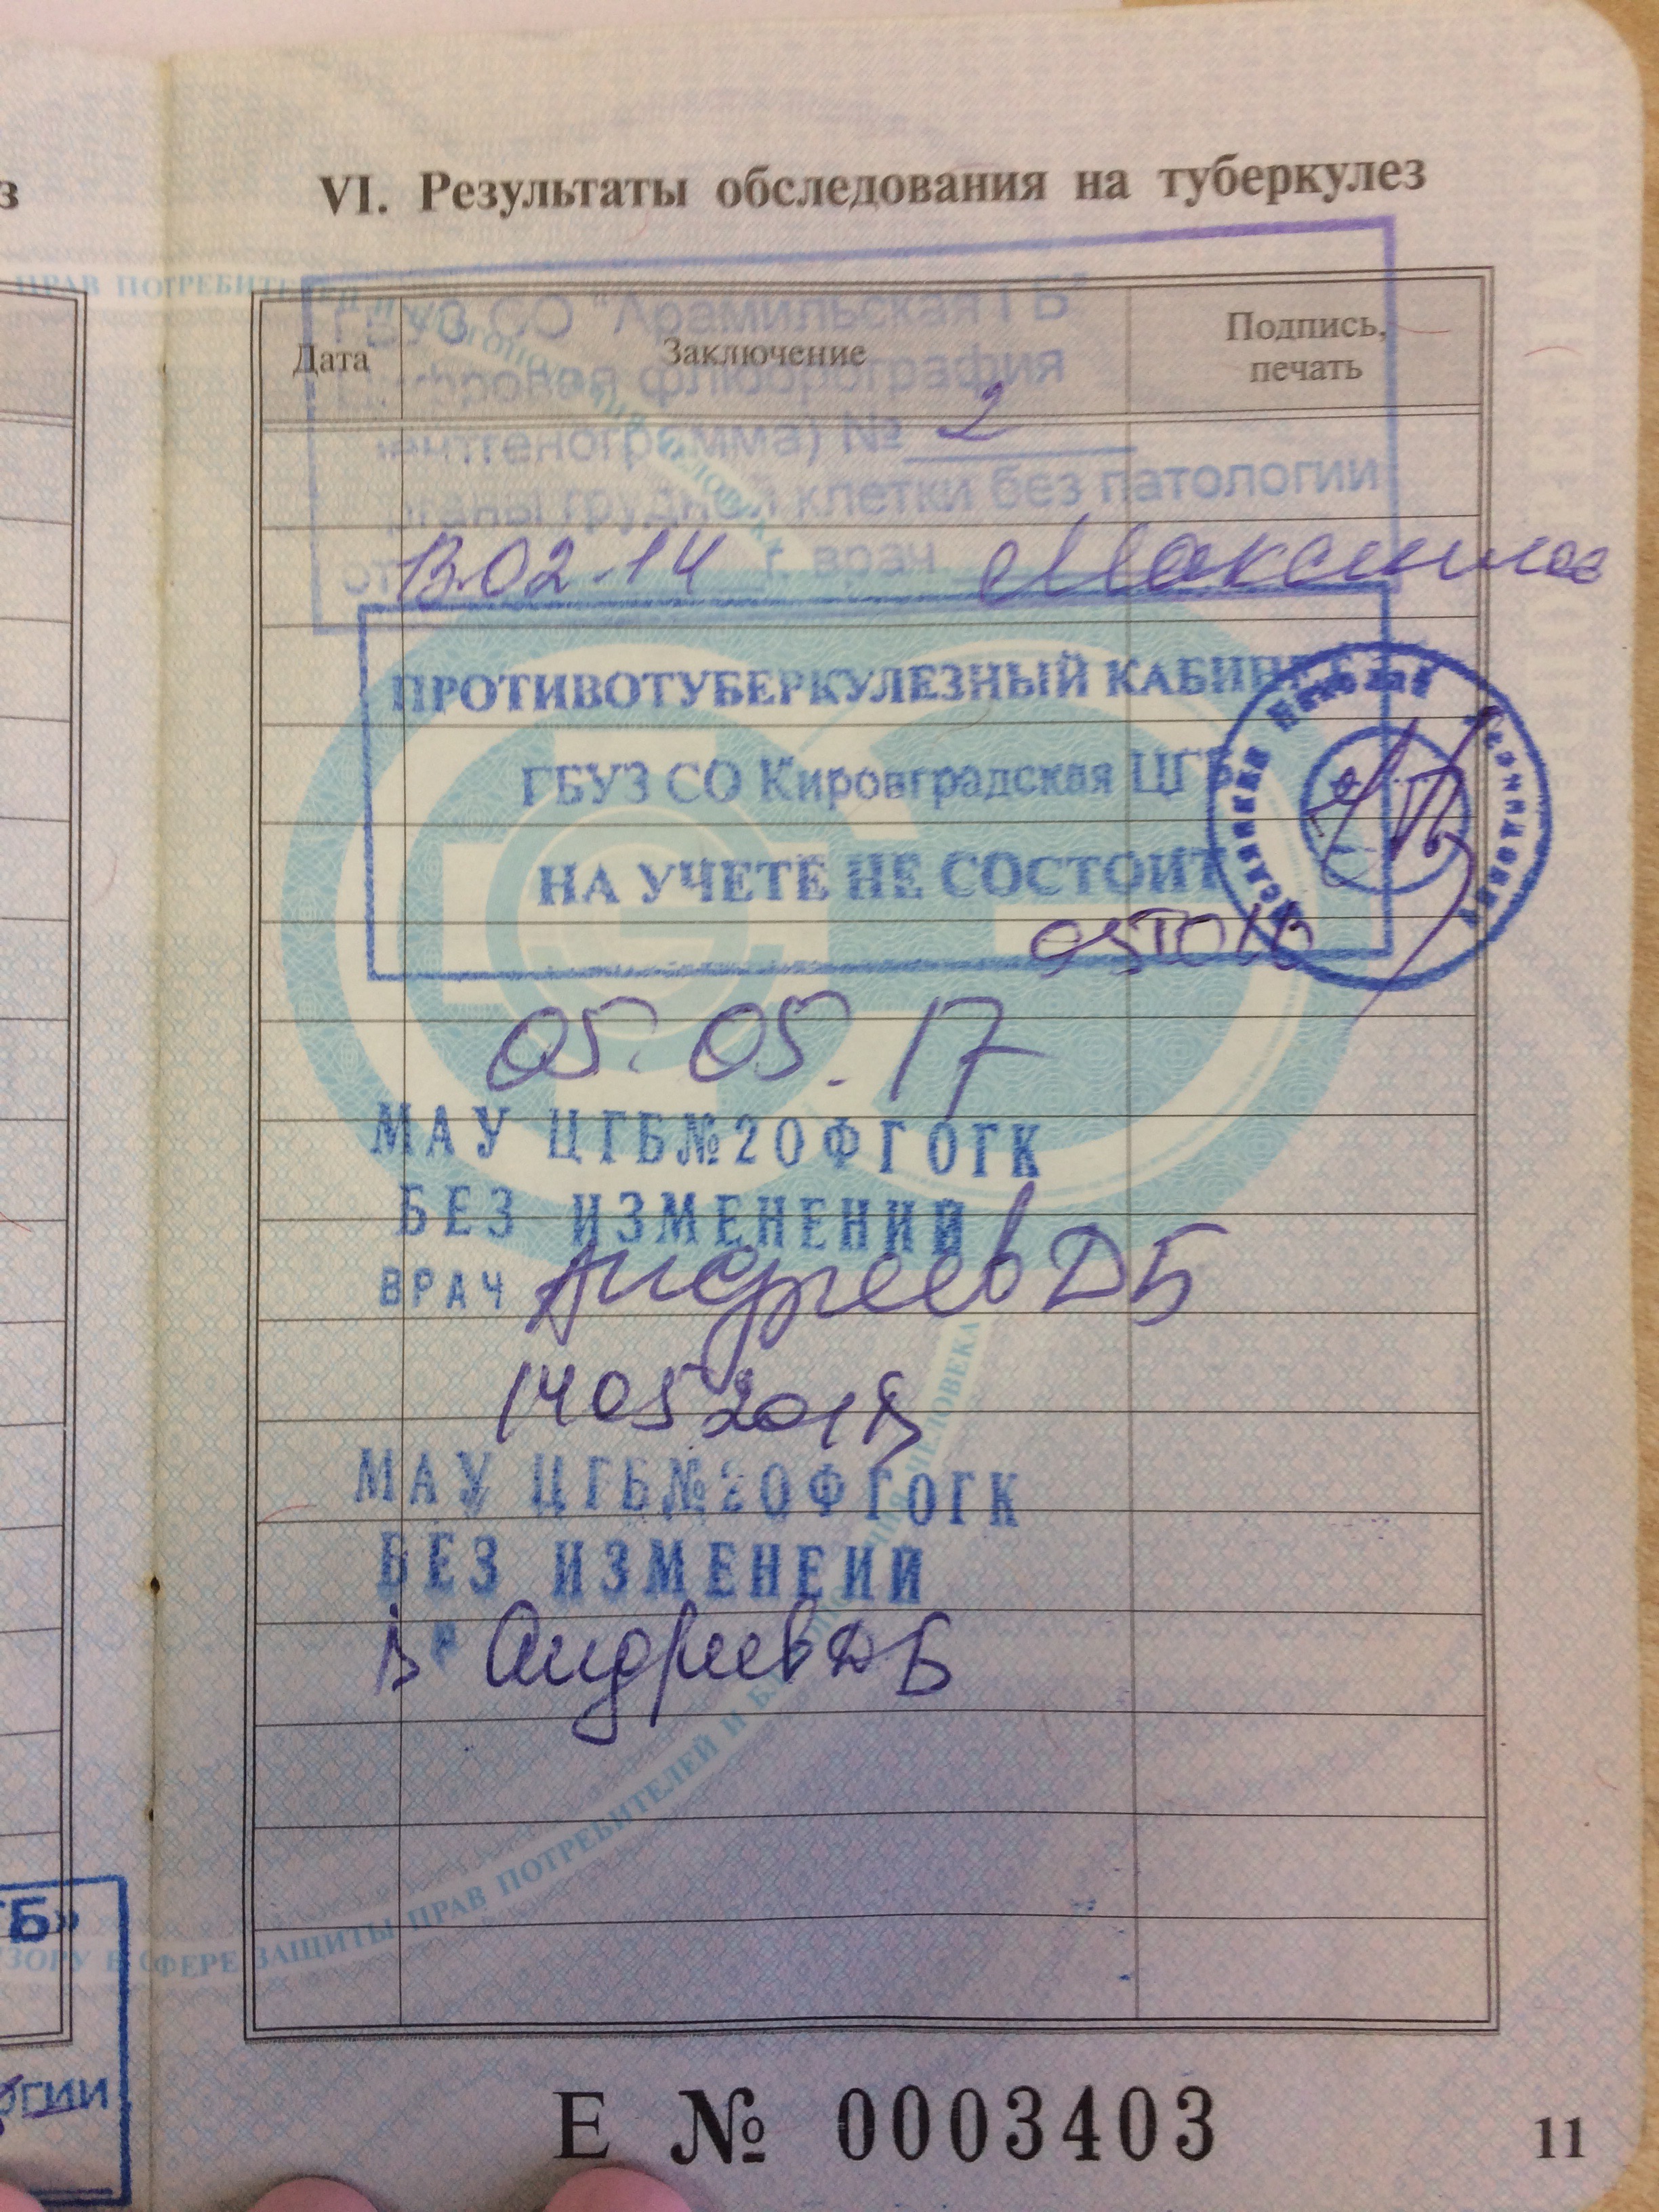 з
VI. Результаты обследования на туберкулез
Дата
Заключение
Подпись,
печать
ГБУЗ СО "Арамильская ГБ"
флюорография
№ 2
клетки без патологии
от 13.02.14 г. врач
ПРОТИВОТУБЕРКУЛЕЗНЫЙ КАБИНЕТ
ГБУЗ СО Кировградская ЦГБ
НА УЧЕТЕ НЕ СОСТОИТ
05.05.17
МАУ ЦГБ№20ФГОГК
БЕЗ ИЗМЕНЕНИЙ
ВРАЧ Андреев ДБ
МАУ ЦГБ№20ФГОГК
БЕЗ ИЗМЕНЕИЙ
Андреев ДБ
ПРАВ ПОТРЕБИТЕЛЕЙ И
ЗОРУ В СФЕРЕ ЗАЩИТЫ ПРАВ ПОТРЕБИТЕЛЕЙ И
ЧЕЛОВЕКА
ГБ»
огии
Е № 0003403
11